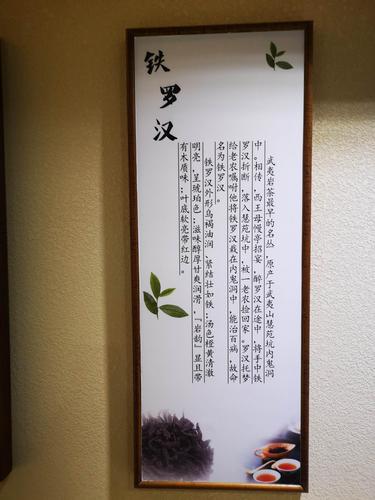 铁罗汉
武夷岩茶最早的名丛,原产于武夷山慧苑坑内鬼洞
中。相传,西王母幔亭招宴,醉罗汉在途中,将手中铁
罗汉折断,落入慧苑坑中,被一老农捡回家。罗汉托梦
给老农嘱咐他将铁罗汉栽在内鬼洞中,能治百病,故命
名为铁罗汉。
铁罗汉外形乌褐油润,紧结壮如铁;汤色橙黄清澈
明亮,呈琥珀色;滋味醇厚甘爽润滑,『岩韵』显且带
有木质味;叶底软亮带红边。